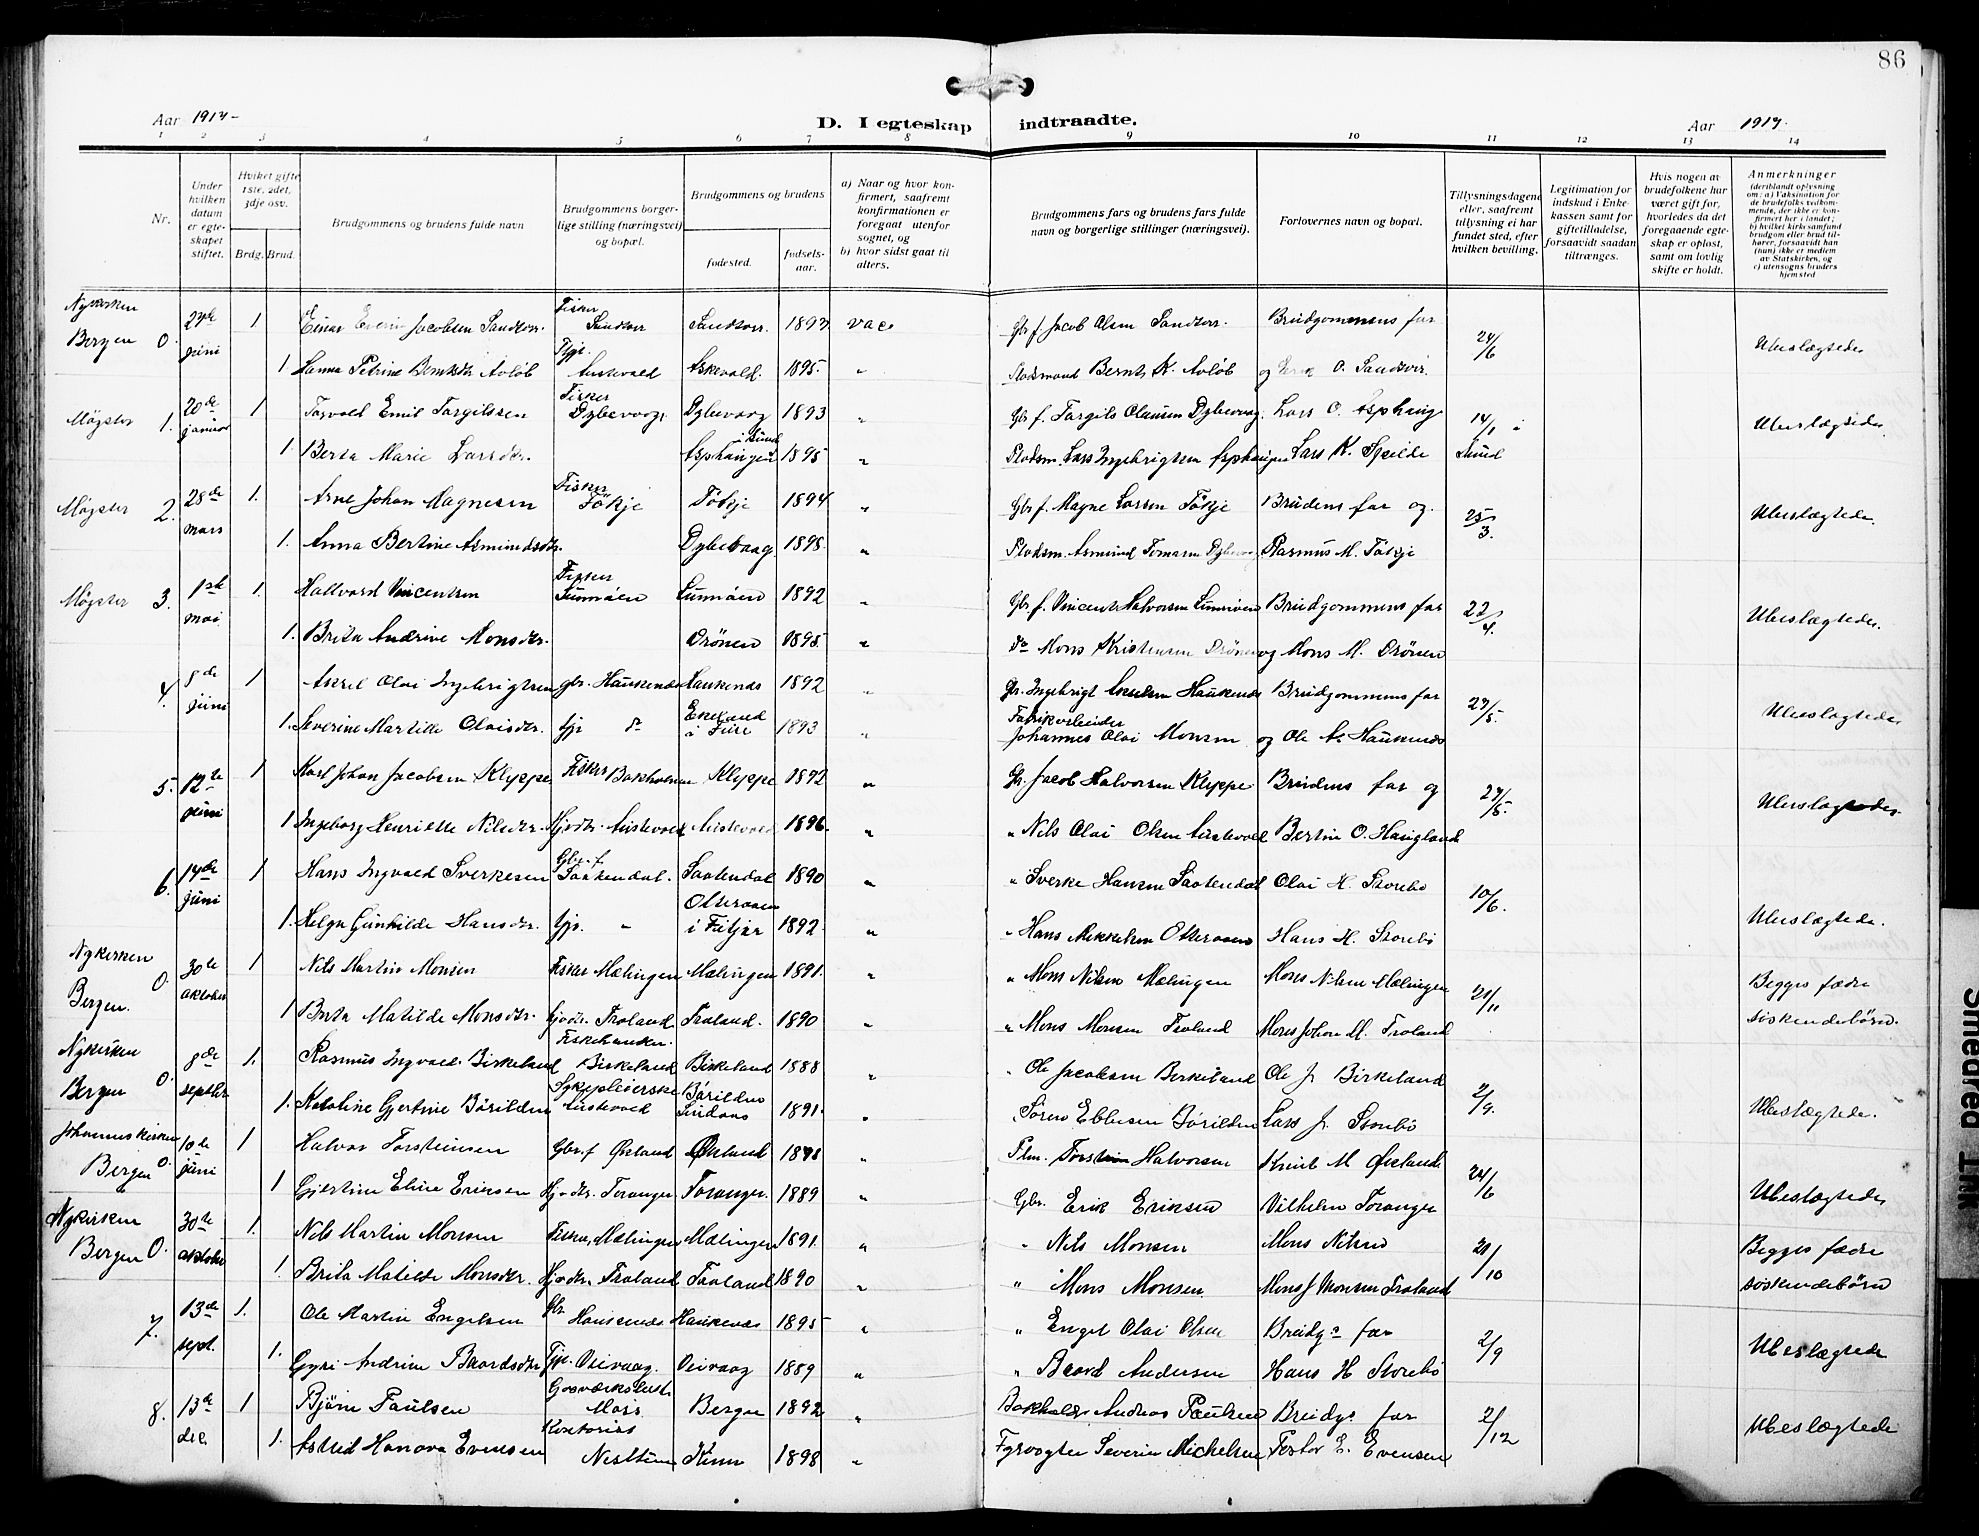 86
Aar 1917-
D. I egteskap indtraadte.
Aar 1917.
1 2 3 4 5 6 7 8 9 10 11 12 13 14
Nr.
Under hvilken datum er egteskapet stiftet.
Hviket gifte 1ste, 2det, 3dje osv.
Brdg. Brud.
Brudgommens og brudens fulde navn
Brudgommens borgerlige stilling (næringsvei) og bopæl.
Brudgommens og brudens
fødested.
fødselsaar.
a) Naar og hvor konfirmert, saafremt konfirmationen er foregaat utenfor sognet, og
b) hvor sidst gaat til alters.
Brudgommens fars og brudens fars fulde navn og borgerlige stillinger (næringsvei).
Forlovernes navn og bopæl.
Tillysningsdagene eller, saafremt tillysning ei har fundet sted, efter hvilken bevilling.
Legitimation for indskud i Enkekassen samt for giftetilladelse, forsaavidt saadan tiltrænges.
Hvis nogen av brudefolkene har været gift før, hvorledes da det foregaaende egteskap er opløst, samt om lovlig skifte er holdt.
Anmerkninger
(deriblandt oplysning om: a) Vaksination for de brudefolks vedkommende, der ikke er konfirmert her i landet; b) hvilket kirkesamfund brudgom eller brud tilhører, forsaavidt han (hun) ikke er medlem av Statskirken, og c) utensogns bruders hjemsted
Nykirken Bergen 0. juni 1 Einar Jacobsen Sandtorv. Fisker Sandtorv Sandtorv. 1893 vac. Gbr.f. Jacob Olsen Sandtorv. Brudgommens far 24/6 Ubeslægtede
1 Hanna Petrine Berntsdtr Avløb Tjpi. Austevold Askevold. 1895. " Bernt K. Avløb og Erik O. Sandtorv.
Møgster 1. 20de januar 1 Torvald Emil Torgilssen Fisker Dybevaag, Dybevaag 1893 " Gbr f. Torgils Clausen Dybevaag. Lars O. Asphaug 14/1 i Ubeslægtede.
1 Berta Marie Larsdtr. Asphaugen i Sund 1895 " Pladsm. Lars Ingebrigtsen Asphaugen Lars K. Speilde Sund
Møgster 2. 28de mars 1. Arne Johan Magnesen Fisker Tøkje Tøkje 1894 " Gbr f. Magne Larsen Tøkje Brudens far og 25/3. Ubeslægtede.
1. Anna Bertine Asmundsdtr. Dybevaag 1895. " Pladsm. Asmund Tomasen Dybevaag Rasmus M. Tøkje
Møgster 3. 1ste mai 1. Hallvard Vincentsen Fisker 1892 " Gbr. f. Vincent Halvorsen Brudgommens far 22/4. Ubeslægtede.
1. Brita Andrine Monsdtr. Drönen 1895. " do Mons Kristensen Drönen og Mons M. Drönen
4. 8de juni 1 Aksel Olai Ingebrigtsen gbr. Haukenæs Haukenæs 1892 " Gbr. Ingebrigt Haukenæs Brudgommens far 27/5. Ubeslægtede.
1. Severine Martille Olaisdtr. tjp do Ekeland i Fure 1893 " Fabrikarbeider Johannes Olai Monsen og Ole A. Haukenæs
5. 12te juni 1 Karl Johan Jacobsen Klyppe Fisker Bakholmen Klyppe 1892 " Gbr. Jacob Halvorsen Klyppe Brudens far og 27/5. Ubeslægtede.
1 Ingeborg Henriette Nilsdtr. Hjvdtr. Austevold Austevold 1896. " " Nils Olai Olsen Austevold Bertin O. Haugland
6. 17de juni 1 Hans Ingvald Sverkesen Gbr.f. Saatendal. Saatendal 1890 " " Sverke Hansen Saatendal Olai H. Storebø 10/6.
1. Helga Gunhilde Hansdtr. tjp. " Otteraaen i Fitjar 1892. " " Hans Mikkelsen Otteraaen Hans H. Storebø Ubeslægtede.
Nykirken Bergen. 0. 30te oktober 1 Nils Martin Monsen Fisker Mælingen Mælingen 1891. " " Mons Nilsen Mælingen Mons Nilsen Mælingen 21/11 Begges fædre søskendebørn.
1 Brita Matilde Monsdtr. hjvdtr. Troland Troland. 1890 " " Mons Monsen Troland Mons Johan M. Troland
Nykirken Bergen 0. 8de septbr 1. Rasmus Ingvald Birkeland Fiskehandler. Birkeland Birkeland 1888 " " Ole Jacobsen Birkeland Ole J. Birkeland 2/9. Ubeslægtede.
1. Kataline Gjertine Børilden Sykepleierske Austevold Børilden Sundaas 1891. " Søren Ebbesen Børilden Lars J. Storebø
Johanneskirken Bergen 0. 10de juni 1 Halvor Torsteinsen Gbr.f Østland Østland 1898 " Plm. Torstein Halvorsen Knut M Østland 24/6 Ubeslægtede
1 Gjertine Eline Eriksen Hjvdtr. Toranger. Toranger. 1889 " Gbr. Erik Eriksen Vilhelm Toranger
Nykirken Bergen 0. 30te oktober 1. Nils Martin Monsen Fisker, Mælingen Mælingen 1891. " " Nils Monsen Mons Nilsen 21/10 Begges fædre søskendebørn
1. Brita Matilde Monsdtr. Hjvdtr. Troland Troland 1890 " " Mons Monsen. Mons J Monsen Troland
7. 13de sept. 1. Ole Martin Engelsen Gbr Haukenæs Haukenæs 1895 " " Engel Olai Olsen Brudgs far 2/9 Ubeslægtede
1. Gyri Andrine Baardsdtr Tjp. Veivaag. Veivaag 1889 " " Baard Andersen Hans H Storebø
8. 13de dec. 1 Bjørn Paulsen Moss. Bergen 1892 " Bokholder Andreas Paulsen Brudgs far 2/12 Ubeslægtede
1. Astrid Hanova Evensen Kontorist Nesttun Kinn 1898 " Fyrvogter Severin Michelsen Testor E. Evensen
Smedred Trik